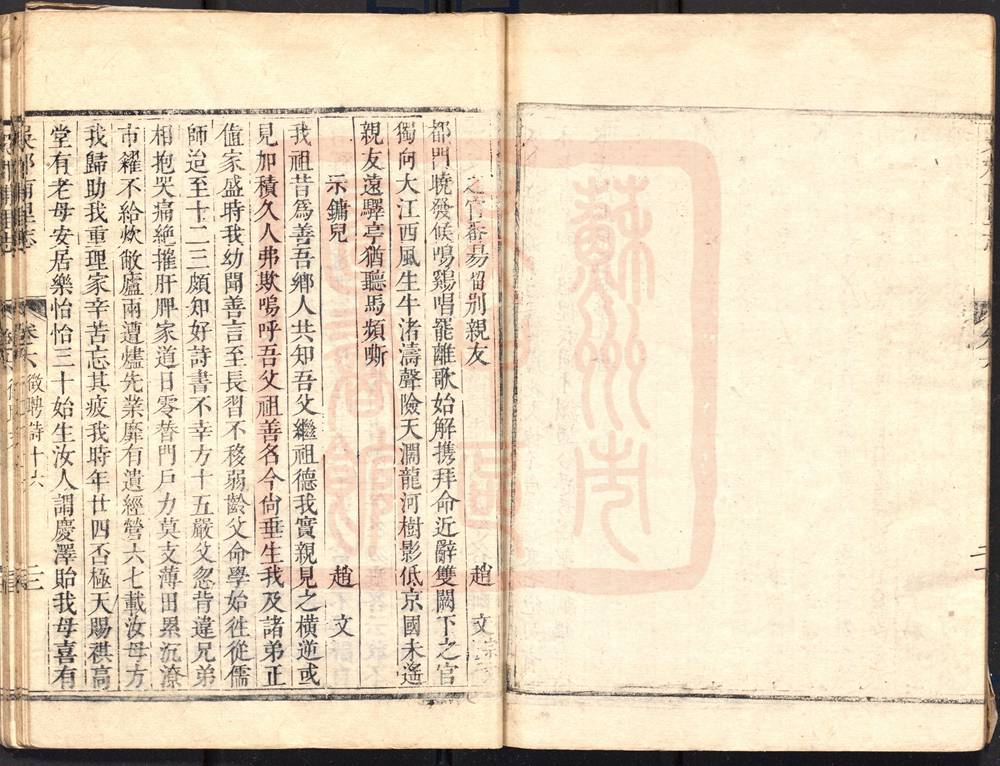 之官番昜留別親友　趙　文
都門曉發候鳴鷄唱罷離歌始解携拜命近辭雙闕下之官
獨向大江西風生牛渚濤聲險天濶龍河樹影低京國未遙
親友遠驛亭猶聽馬頻嘶
示鏞兒　趙　文
我祖昔爲善吾鄉人共知吾父繼祖德我實親見之橫逆或
見加積久人弗欺嗚呼吾父祖善名今尙垂生我及諸弟正
值家盛時我幼聞善言至長習不移弱齡父命學始徃從儒
師迨至十二三頗知好詩書不幸方十五嚴父忽背違兄弟
相抱哭痛絶摧肝脾家道日零替門戶力莫支薄田累沉潦
市糴不給炊敝廬兩遭燼先業靡有遺經營六七載汝母方
我歸助我重理家辛苦忘其疲我時年廿四否極天賜祺高
堂有老母安居樂怡怡三十始生汝人謂慶澤貽我母喜有
吳郡甫里志　卷六　徵聘詩十六　三
蘇州市
圖書館